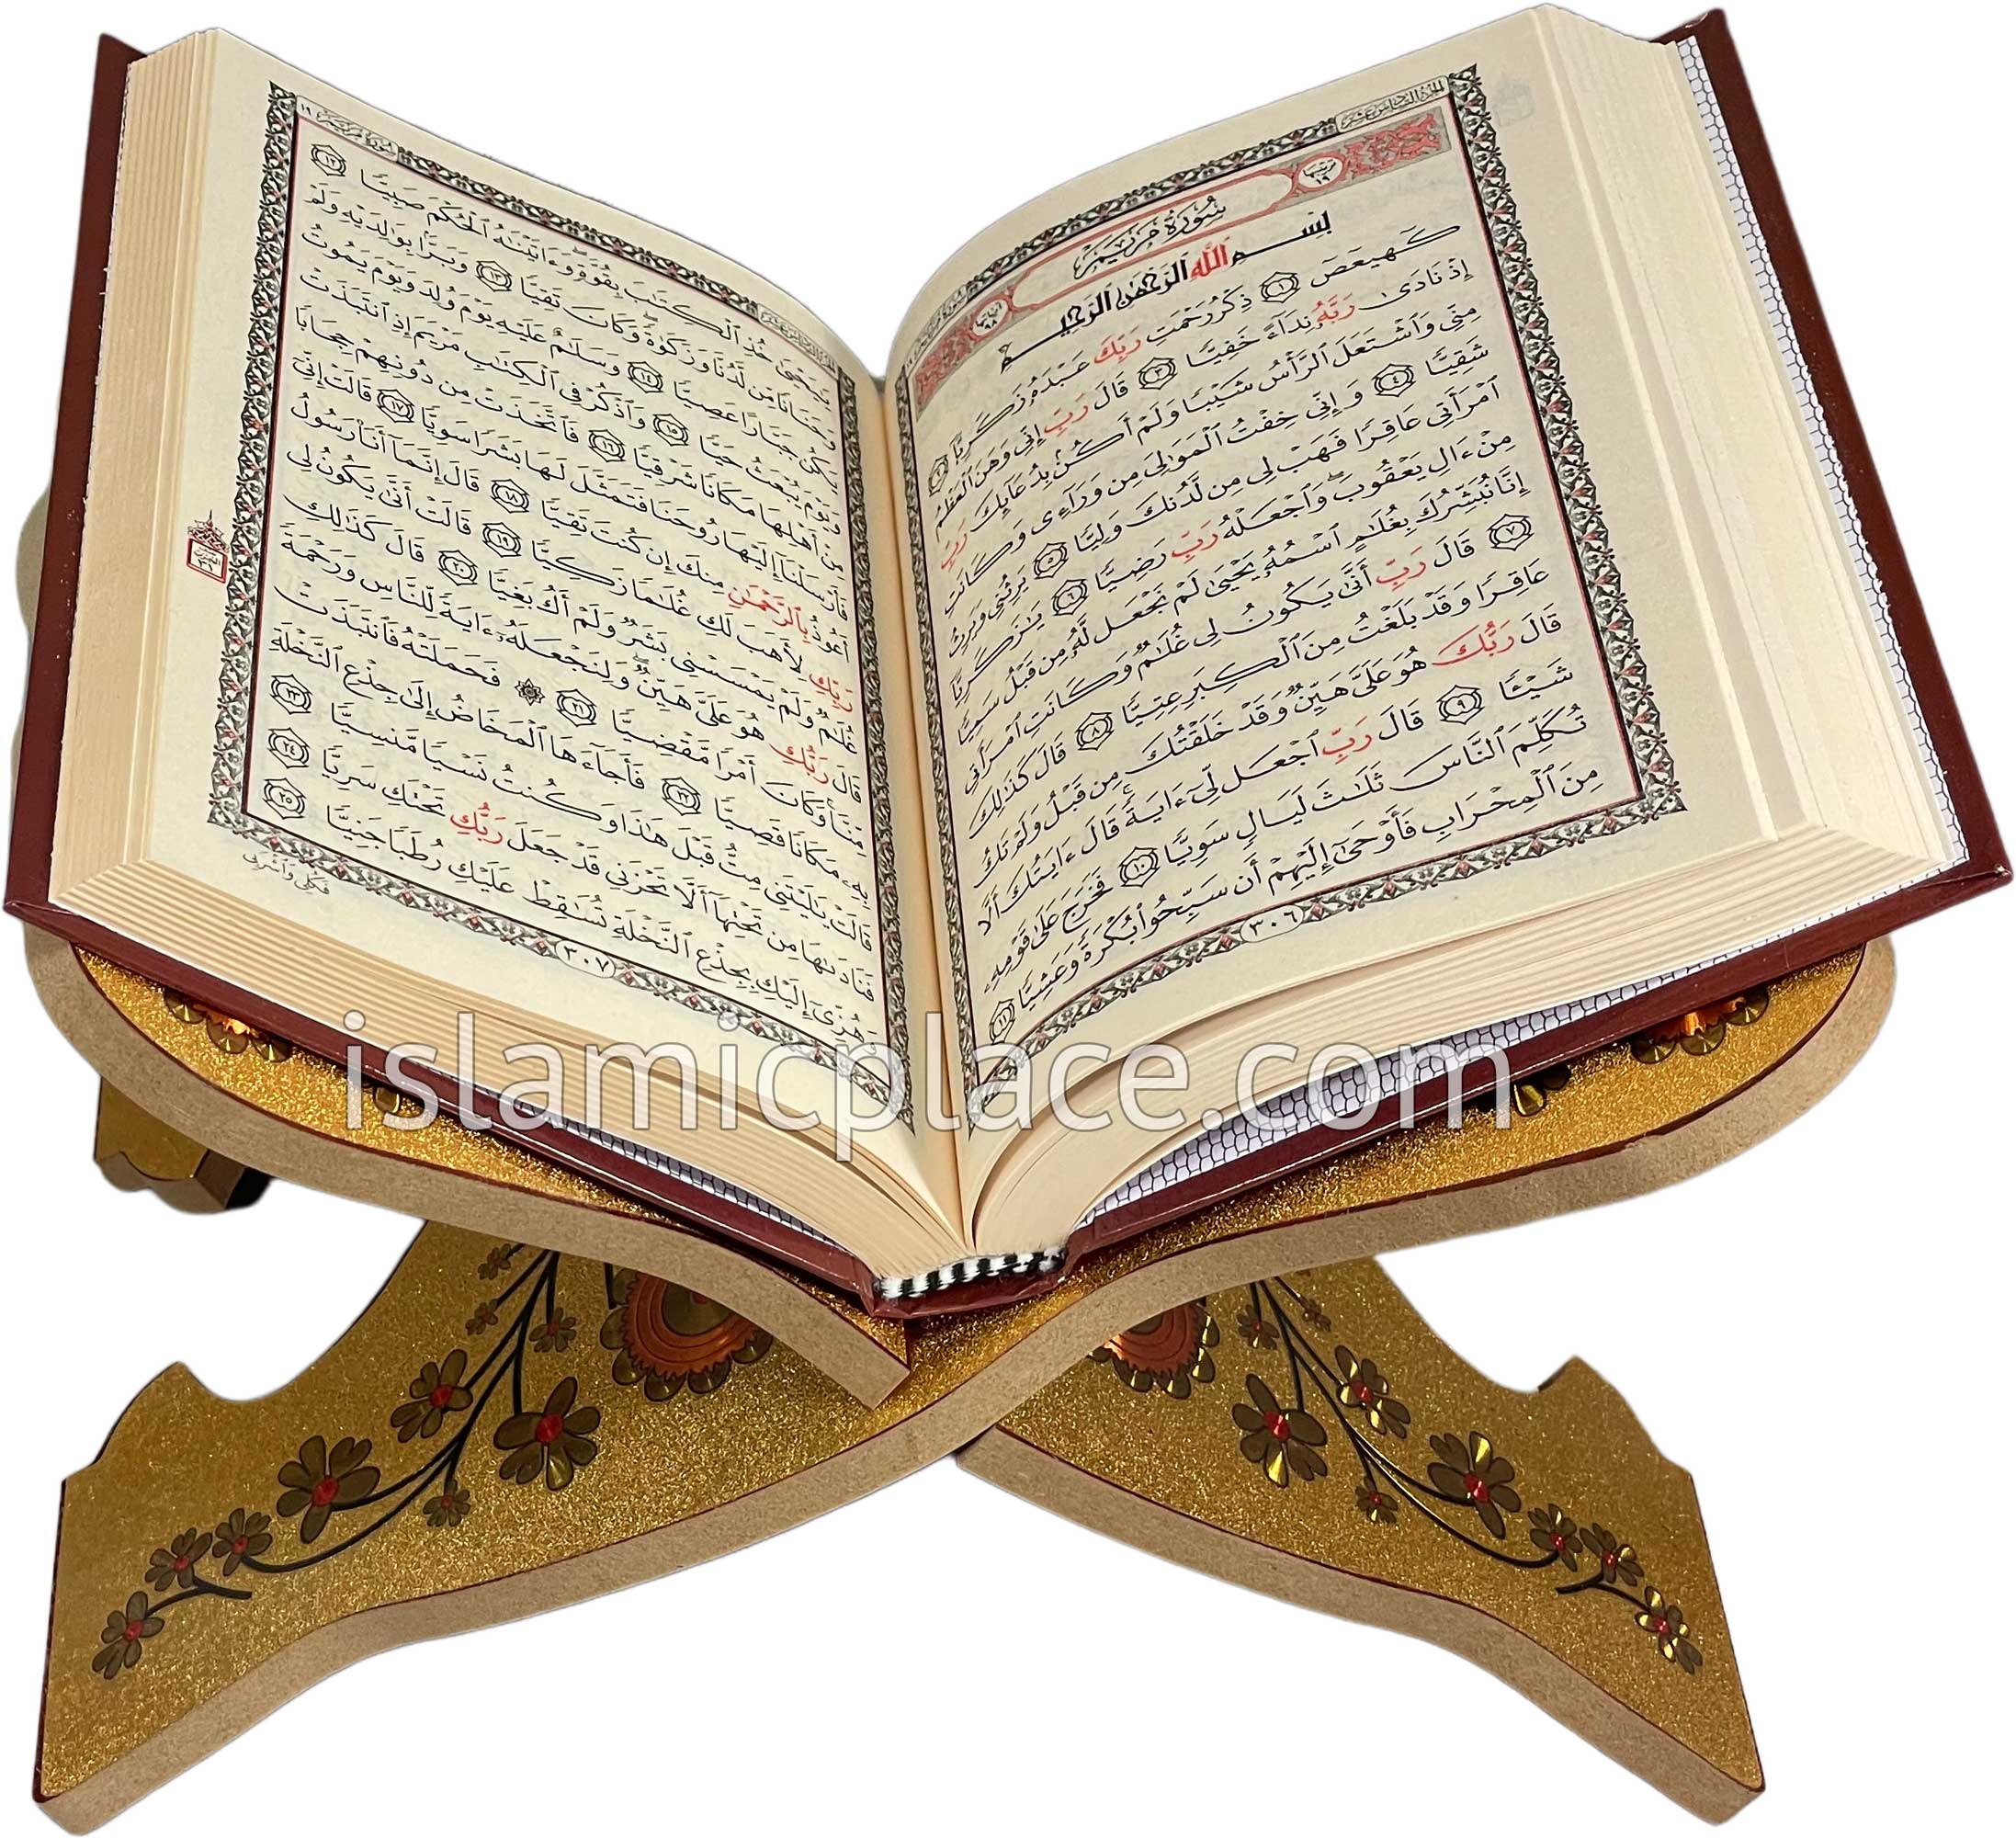 الجزء السادس عشر
سورة مريم
ترتيبها ١٩ سُورَةُ مَرْيَمَ آياتها ٩٨
بِسْمِ ٱللَّهِ ٱلرَّحْمَٰنِ ٱلرَّحِيمِ
كٓهيعٓصٓ ١ ذِكْرُ رَحْمَتِ رَبِّكَ عَبْدَهُۥ زَكَرِيَّآ ٢
إِذْ نَادَىٰ رَبَّهُۥ نِدَآءً خَفِيًّا ٣ قَالَ رَبِّ إِنِّى وَهَنَ ٱلْعَظْمُ
مِنِّى وَٱشْتَعَلَ ٱلرَّأْسُ شَيْبًا وَلَمْ أَكُنۢ بِدُعَآئِكَ رَبِّ
شَقِيًّا ٤ وَإِنِّى خِفْتُ ٱلْمَوَٰلِىَ مِن وَرَآءِى وَكَانَتِ
ٱمْرَأَتِى عَاقِرًا فَهَبْ لِى مِن لَّدُنكَ وَلِيًّا ٥ يَرِثُنِى وَيَرِثُ
مِنْ ءَالِ يَعْقُوبَ ۖ وَٱجْعَلْهُ رَبِّ رَضِيًّا ٦ يَٰزَكَرِيَّآ
إِنَّا نُبَشِّرُكَ بِغُلَٰمٍ ٱسْمُهُۥ يَحْيَىٰ لَمْ نَجْعَل لَّهُۥ مِن قَبْلُ سَمِيًّا
٧ قَالَ رَبِّ أَنَّىٰ يَكُونُ لِى غُلَٰمٌ وَكَانَتِ ٱمْرَأَتِى
عَاقِرًا وَقَدْ بَلَغْتُ مِنَ ٱلْكِبَرِ عِتِيًّا ٨ قَالَ كَذَٰلِكَ
قَالَ رَبُّكَ هُوَ عَلَىَّ هَيِّنٌ وَقَدْ خَلَقْتُكَ مِن قَبْلُ وَلَمْ تَكُ
شَيْـًٔا ٩ قَالَ رَبِّ ٱجْعَل لِّىٓ ءَايَةً ۚ قَالَ ءَايَتُكَ أَلَّا
تُكَلِّمَ ٱلنَّاسَ ثَلَٰثَ لَيَالٍ سَوِيًّا ١٠ فَخَرَجَ عَلَىٰ قَوْمِهِۦ
مِنَ ٱلْمِحْرَابِ فَأَوْحَىٰٓ إِلَيْهِمْ أَن سَبِّحُوا۟ بُكْرَةً وَعَشِيًّا ١١
٣٠٦
الجزء السادس عشر
سورة مريم ١٩
يَٰيَحْيَىٰ خُذِ ٱلْكِتَٰبَ بِقُوَّةٍ ۖ وَءَاتَيْنَٰهُ ٱلْحُكْمَ صَبِيًّا ١٢
وَحَنَانًا مِّن لَّدُنَّا وَزَكَوٰةً ۖ وَكَانَ تَقِيًّا ١٣ وَبَرًّۢا بِوَٰلِدَيْهِ وَلَمْ
يَكُن جَبَّارًا عَصِيًّا ١٤ وَسَلَٰمٌ عَلَيْهِ يَوْمَ وُلِدَ وَيَوْمَ يَمُوتُ
وَيَوْمَ يُبْعَثُ حَيًّا ١٥ وَٱذْكُرْ فِى ٱلْكِتَٰبِ مَرْيَمَ إِذِ ٱنتَبَذَتْ
مِنْ أَهْلِهَا مَكَانًا شَرْقِيًّا ١٦ فَٱتَّخَذَتْ مِن دُونِهِمْ حِجَابًا
فَأَرْسَلْنَآ إِلَيْهَا رُوحَنَا فَتَمَثَّلَ لَهَا بَشَرًا سَوِيًّا ١٧ قَالَتْ إِنِّىٓ
أَعُوذُ بِٱلرَّحْمَٰنِ مِنكَ إِن كُنتَ تَقِيًّا ١٨ قَالَ إِنَّمَآ أَنَا۠ رَسُولُ
رَبِّكِ لِأَهَبَ لَكِ غُلَٰمًا زَكِيًّا ١٩ قَالَتْ أَنَّىٰ يَكُونُ لِى
غُلَٰمٌ وَلَمْ يَمْسَسْنِى بَشَرٌ وَلَمْ أَكُ بَغِيًّا ٢٠ قَالَ كَذَٰلِكِ
قَالَ رَبُّكِ هُوَ عَلَىَّ هَيِّنٌ ۖ وَلِنَجْعَلَهُۥٓ ءَايَةً لِّلنَّاسِ وَرَحْمَةً
مِّنَّا ۚ وَكَانَ أَمْرًا مَّقْضِيًّا ٢١ ۞ فَحَمَلَتْهُ فَٱنتَبَذَتْ
بِهِۦ مَكَانًا قَصِيًّا ٢٢ فَأَجَآءَهَا ٱلْمَخَاضُ إِلَىٰ جِذْعِ ٱلنَّخْلَةِ
قَالَتْ يَٰلَيْتَنِى مِتُّ قَبْلَ هَٰذَا وَكُنتُ نَسْيًا مَّنسِيًّا ٢٣
فَنَادَىٰهَا مِن تَحْتِهَآ أَلَّا تَحْزَنِى قَدْ جَعَلَ رَبُّكِ تَحْتَكِ سَرِيًّا ٢٤
وَهُزِّىٓ إِلَيْكِ بِجِذْعِ ٱلنَّخْلَةِ تُسَٰقِطْ عَلَيْكِ رُطَبًا جَنِيًّا ٢٥
فَكُلِى وَٱشْرَبِى
٣٠٧
islamicplace.com